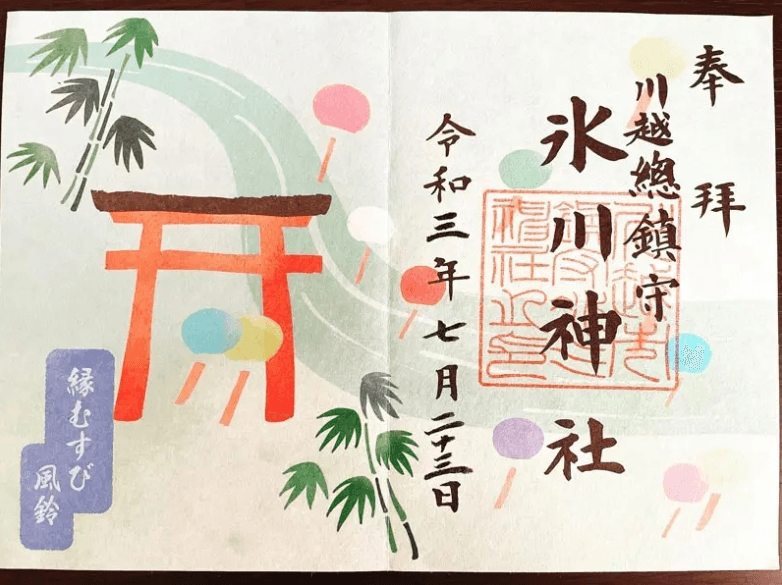 奉拝
川越總鎮守
氷川神社
令和三年七月二十三日
縁むすび
風鈴